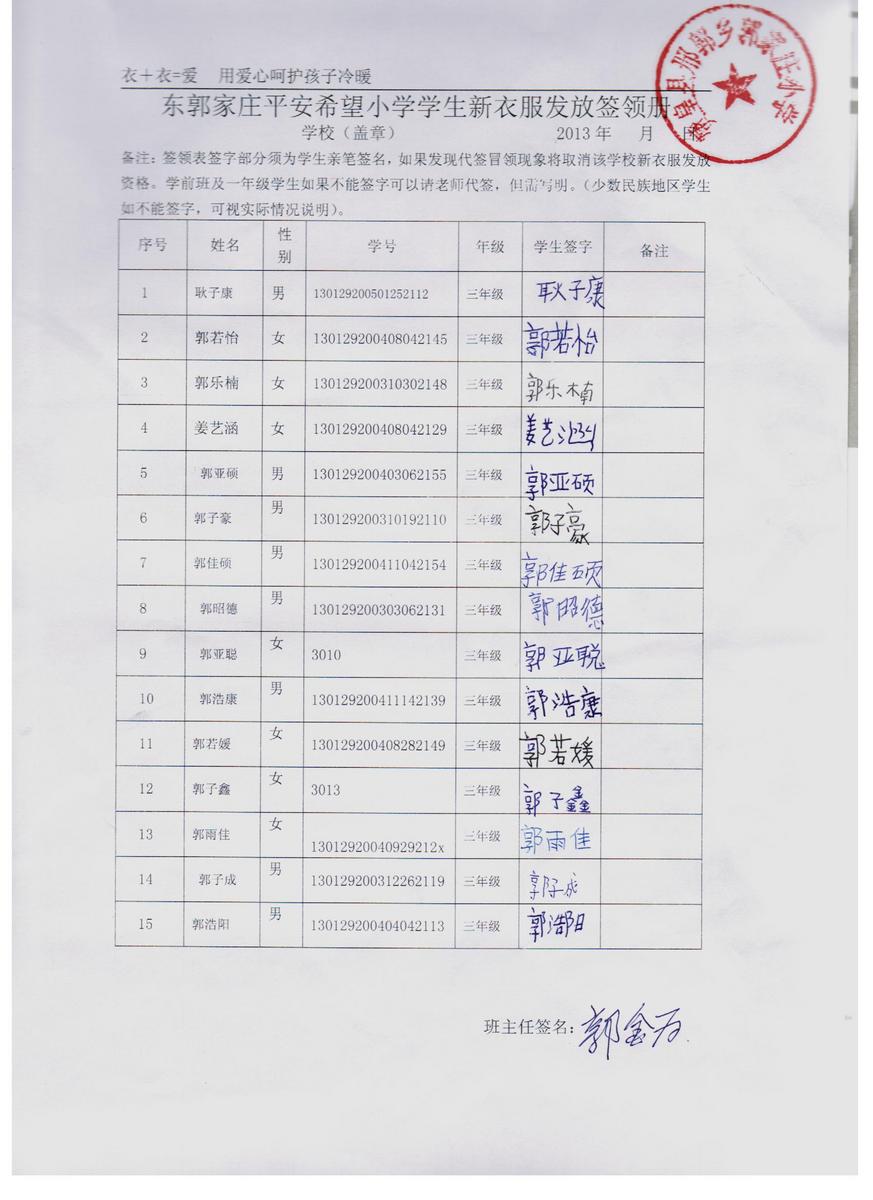 衣＋衣=爱 用爱心呵护孩子冷暖
东郭家庄平安希望小学学生新衣服发放签领册
学校（盖章） 2013 年 月 日
备注：签领表签字部分须为学生亲笔签名，如果发现代签冒领现象将取消该学校新衣服发放
资格。学前班及一年级学生如果不能签字可以请老师代签，但需写明。（少数民族地区学生
如不能签字，可视实际情况说明）。
序号 姓名 性别 学号 年级 学生签字 备注
1 耿子康 男 130129200501252112 三年级 耿子康
2 郭若怡 女 130129200408042145 三年级 郭若怡
3 郭乐楠 女 130129200310302148 三年级 郭乐楠
4 姜艺涵 女 130129200408042129 三年级 姜艺涵
5 郭亚硕 男 130129200403062155 三年级 郭亚硕
6 郭子豪 男 130129200310192110 三年级 郭子豪
7 郭佳硕 男 130129200411042154 三年级 郭佳硕
8 郭昭德 男 130129200303062131 三年级 郭昭德
9 郭亚聪 女 3010 三年级 郭亚聪
10 郭浩康 男 130129200411142139 三年级 郭浩康
11 郭若媛 女 130129200408282149 三年级 郭若媛
12 郭子鑫 女 3013 三年级 郭子鑫
13 郭雨佳 女 13012920040929212x 三年级 郭雨佳
14 郭子成 男 130129200312262119 三年级 郭子成
15 郭浩阳 男 130129200404042113 三年级 郭浩阳
班主任签名：郭金
赞皇县邢郭乡郭家庄小学